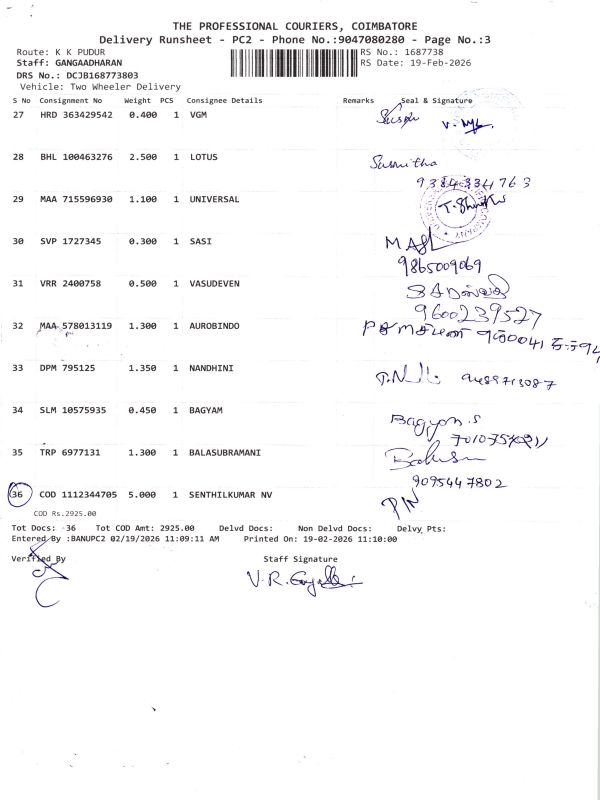 THE PROFESSIONAL COURIERS, COIMBATORE
Delivery Runsheet - PC2 - Phone No.:9047080280 - Page No.:3
Route: K K PUDUR
RS No.: 1687738
Staff: GANGAADHARAN
RS Date: 19-Feb-2026
DRS No.: DCJB168773803
Vehicle: Two Wheeler Delivery
S No Consignment No Weight PCS Consignee Details Remarks Seal & Signature
27 HRD 363429542 0.400 1 VGM
28 BHL 100463276 2.500 1 LOTUS Susmitha
9384334763
29 MAA 715596930 1.100 1 UNIVERSAL
30 SVP 1727345 0.300 1 SASI
9865009069
31 VRR 2400758 0.500 1 VASUDEVEN
9600239527
32 MAA 578013119 1.300 1 AUROBINDO
33 DPM 795125 1.350 1 NANDHINI
34 SLM 10575935 0.450 1 BAGYAM Bagyam.s
35 TRP 6977131 1.300 1 BALASUBRAMANI
9095447802
36 COD 1112344705 5.000 1 SENTHILKUMAR NV PIN
COD Rs.2925.00
Tot Docs: 36 Tot COD Amt: 2925.00 Delvd Docs: Non Delvd Docs: Delvy Pts:
Entered By :BANUPC2 02/19/2026 11:09:11 AM Printed On: 19-02-2026 11:10:00
Verified By Staff Signature